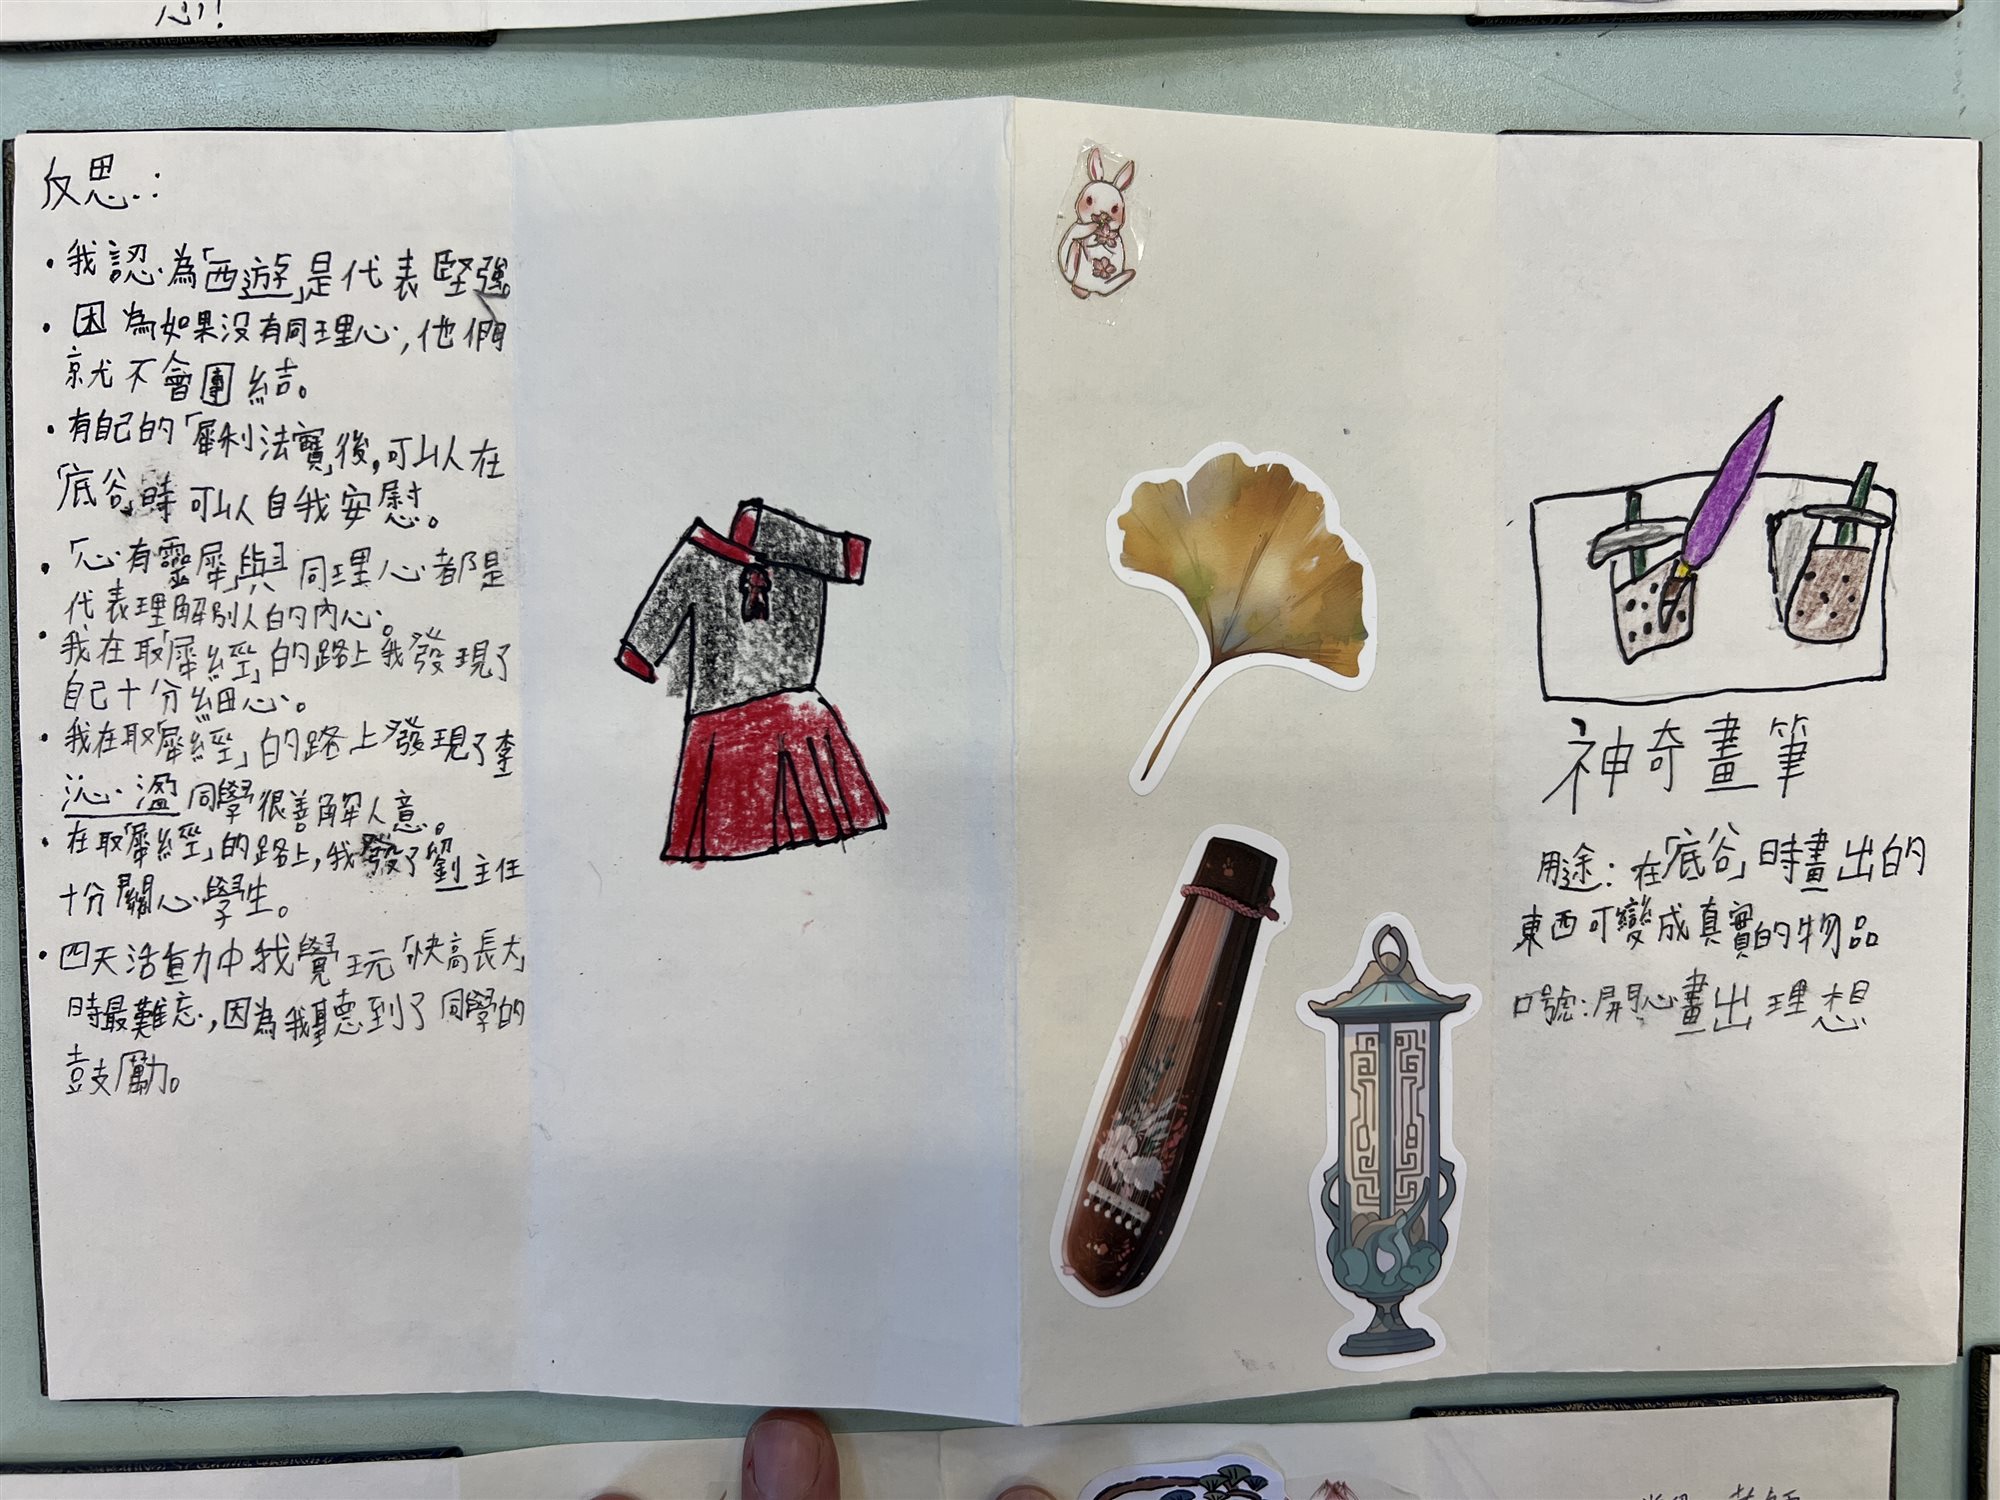 心!
反思:
•我認為「西遊」是代表堅強。
•因為如果沒有同理心,他們
就不會團結。
•有自己的「犀利法寶」後,可以人在
「底谷」時可以自我安慰。
•「心有靈犀」與同理心都是
代表理解別人的內心。
•我在取「犀經」的路上我發現了
自己十分細心。
•我在取「犀經」的路上發現了李
沁盈同學很善解人意。
•在取「犀經」的路上,我發了劉主任
十分關心學生。
•四天活動中我覺玩「快高長大」
時最難忘,因為我聽到了同學的
鼓勵。
神奇畫筆
用途:在「底谷」時畫出的
東西可變成真實的物品
口號:開心畫出理想